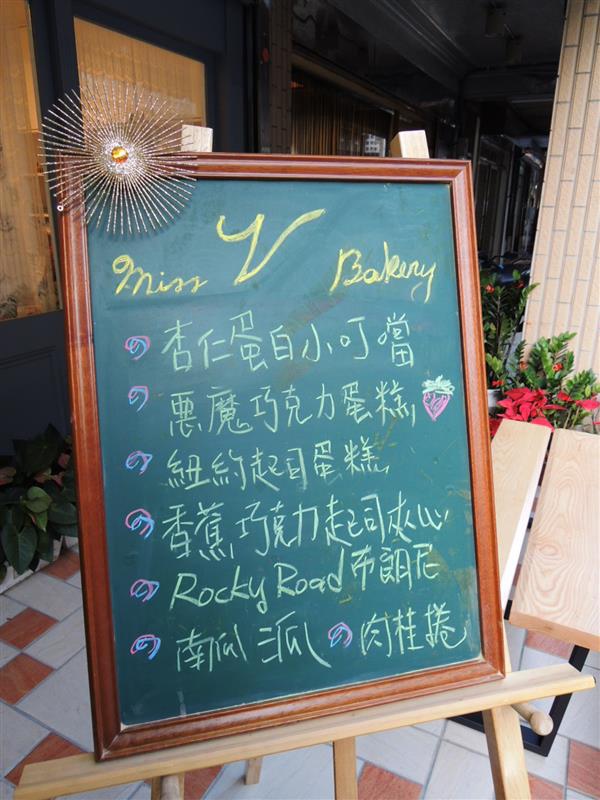 Miss V Bakery
杏仁蛋白小叮噹
惡魔巧克力蛋糕
紐約起司蛋糕
香蕉巧克力起司夾心
Rocky Road布朗尼
南瓜派 肉桂捲